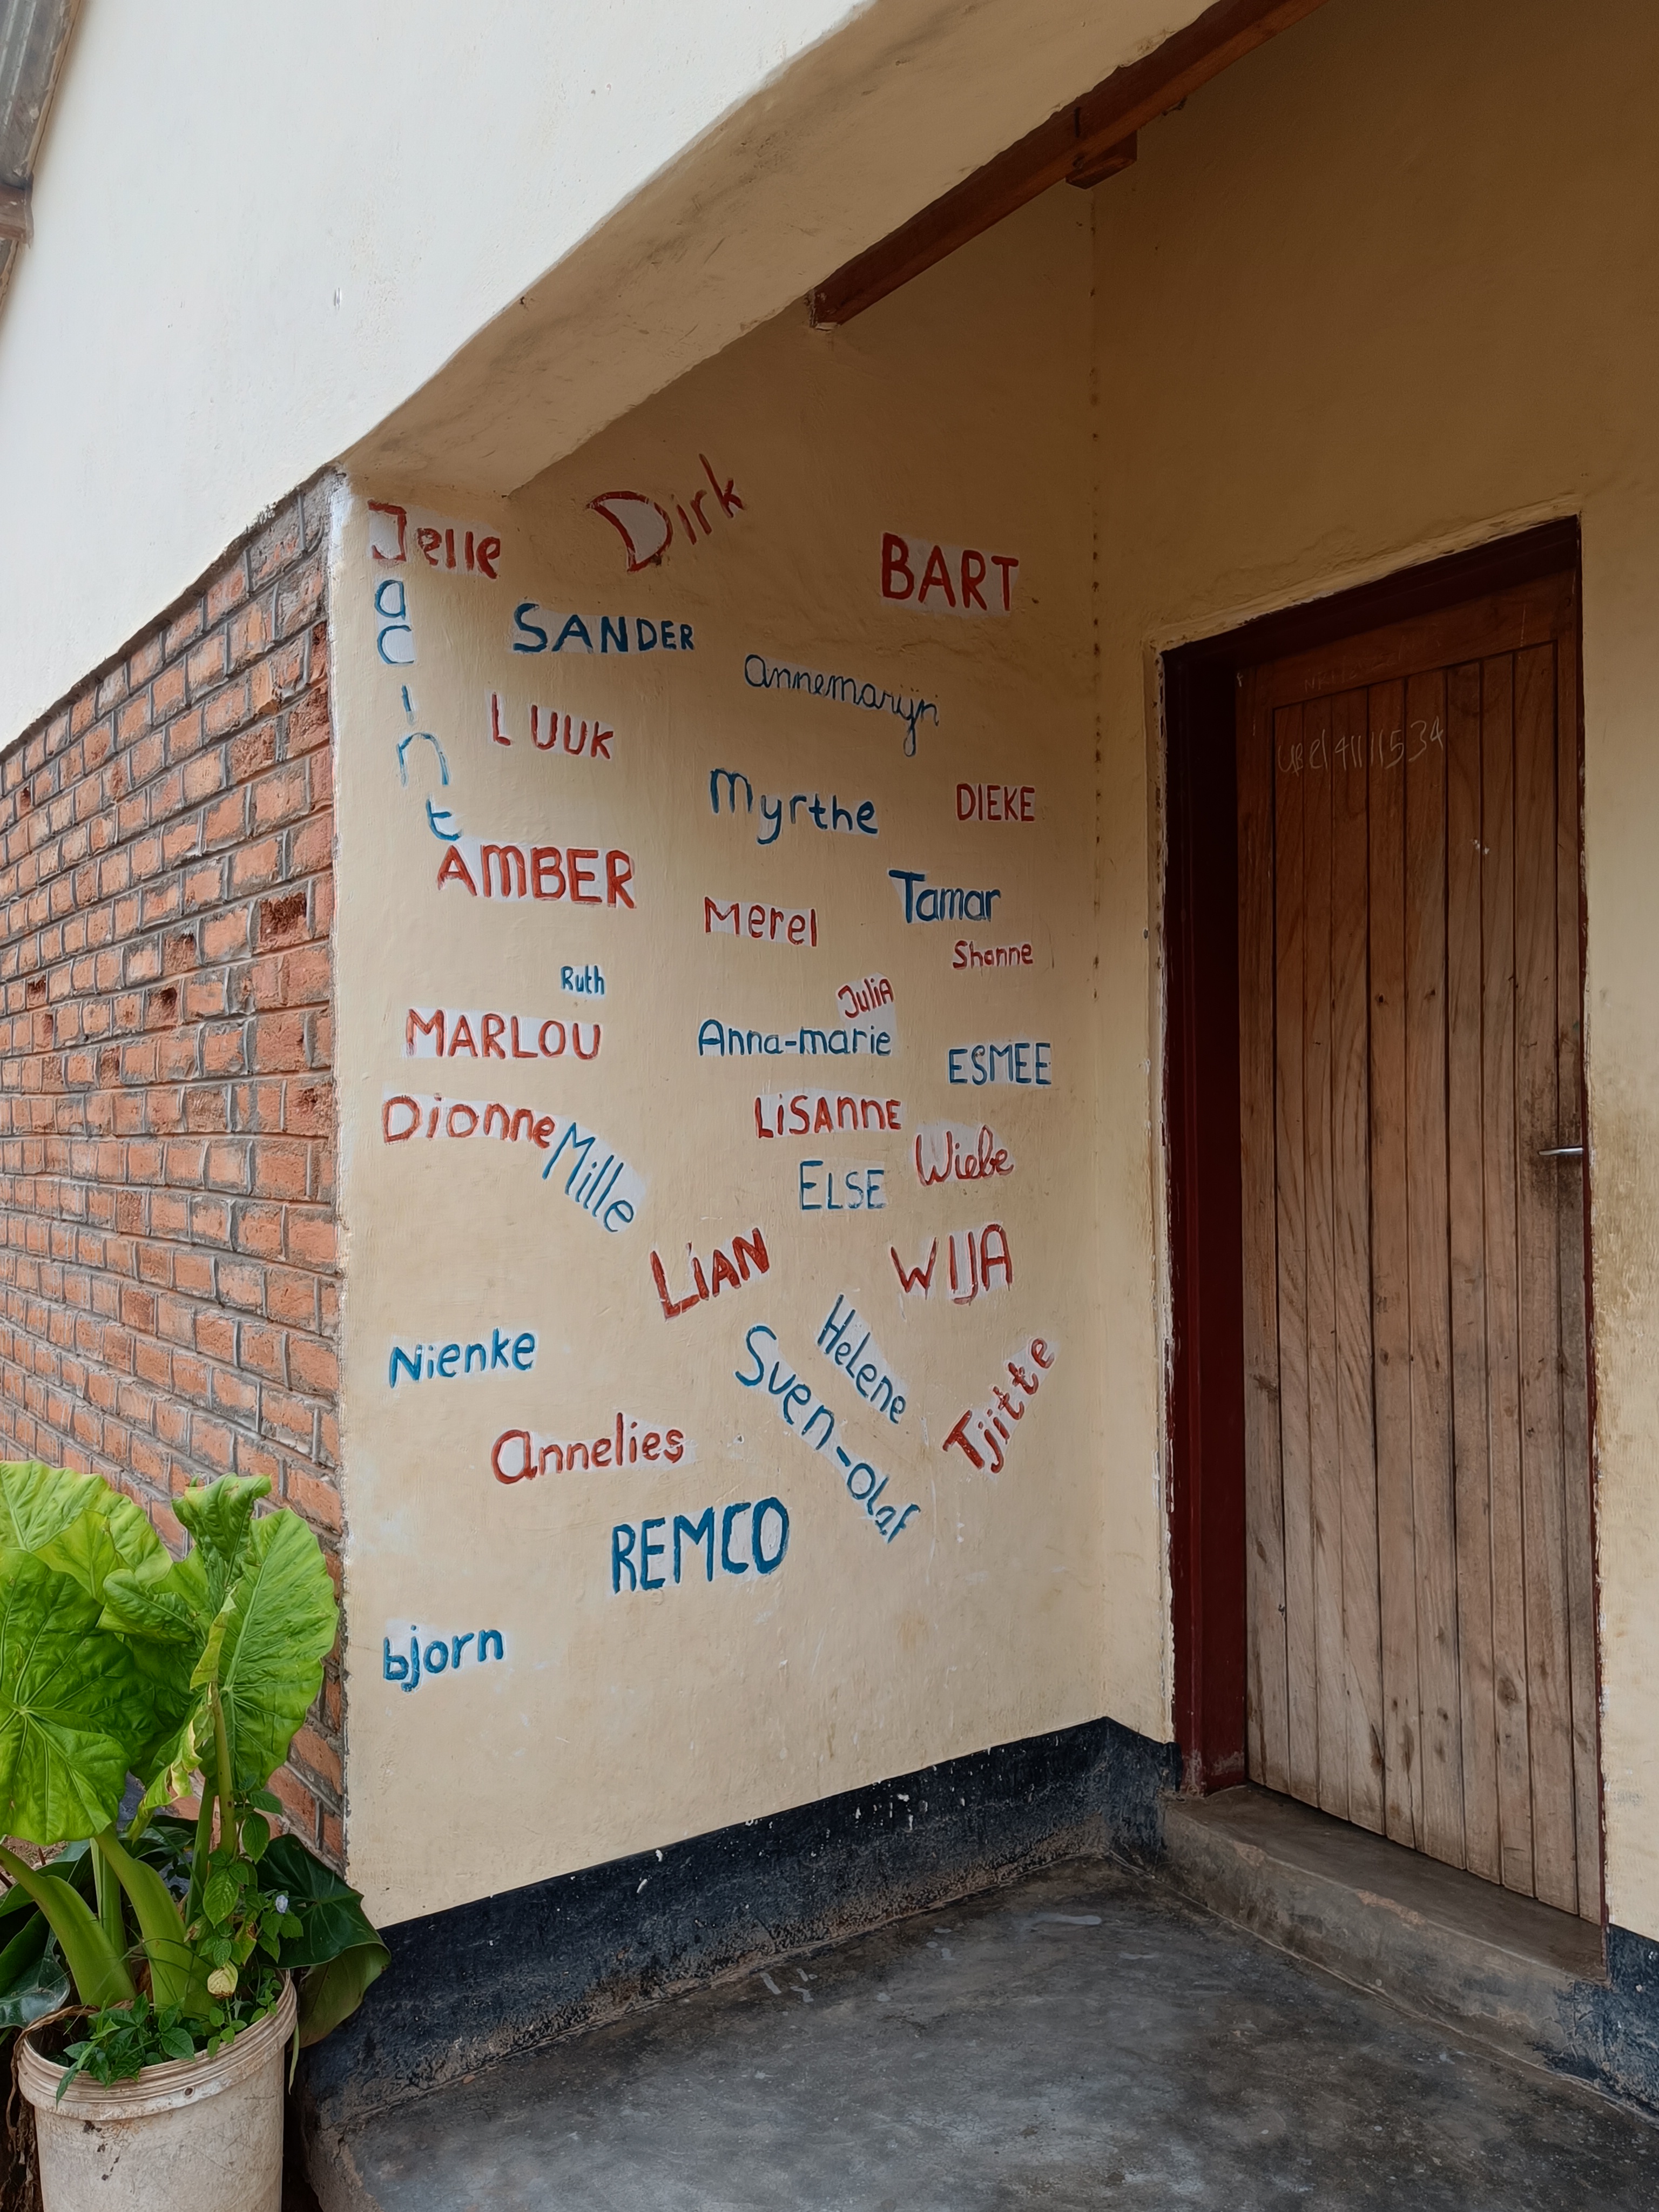 Jelle
Dirk
BART
acint
SANDER
annemarijn
LUUK
Myrthe
DIEKE
AMBER
Tamar
Merel
Shanne
Ruth
JuliA
MARLOU
Anna-marie
ESMEE
Dionne
LiSANNE
Mille
Wiebe
ELSE
LiAN
WIJA
Nienke
HeLene
Sven-Olaf
Tjitte
Annelies
REMCO
bjorn